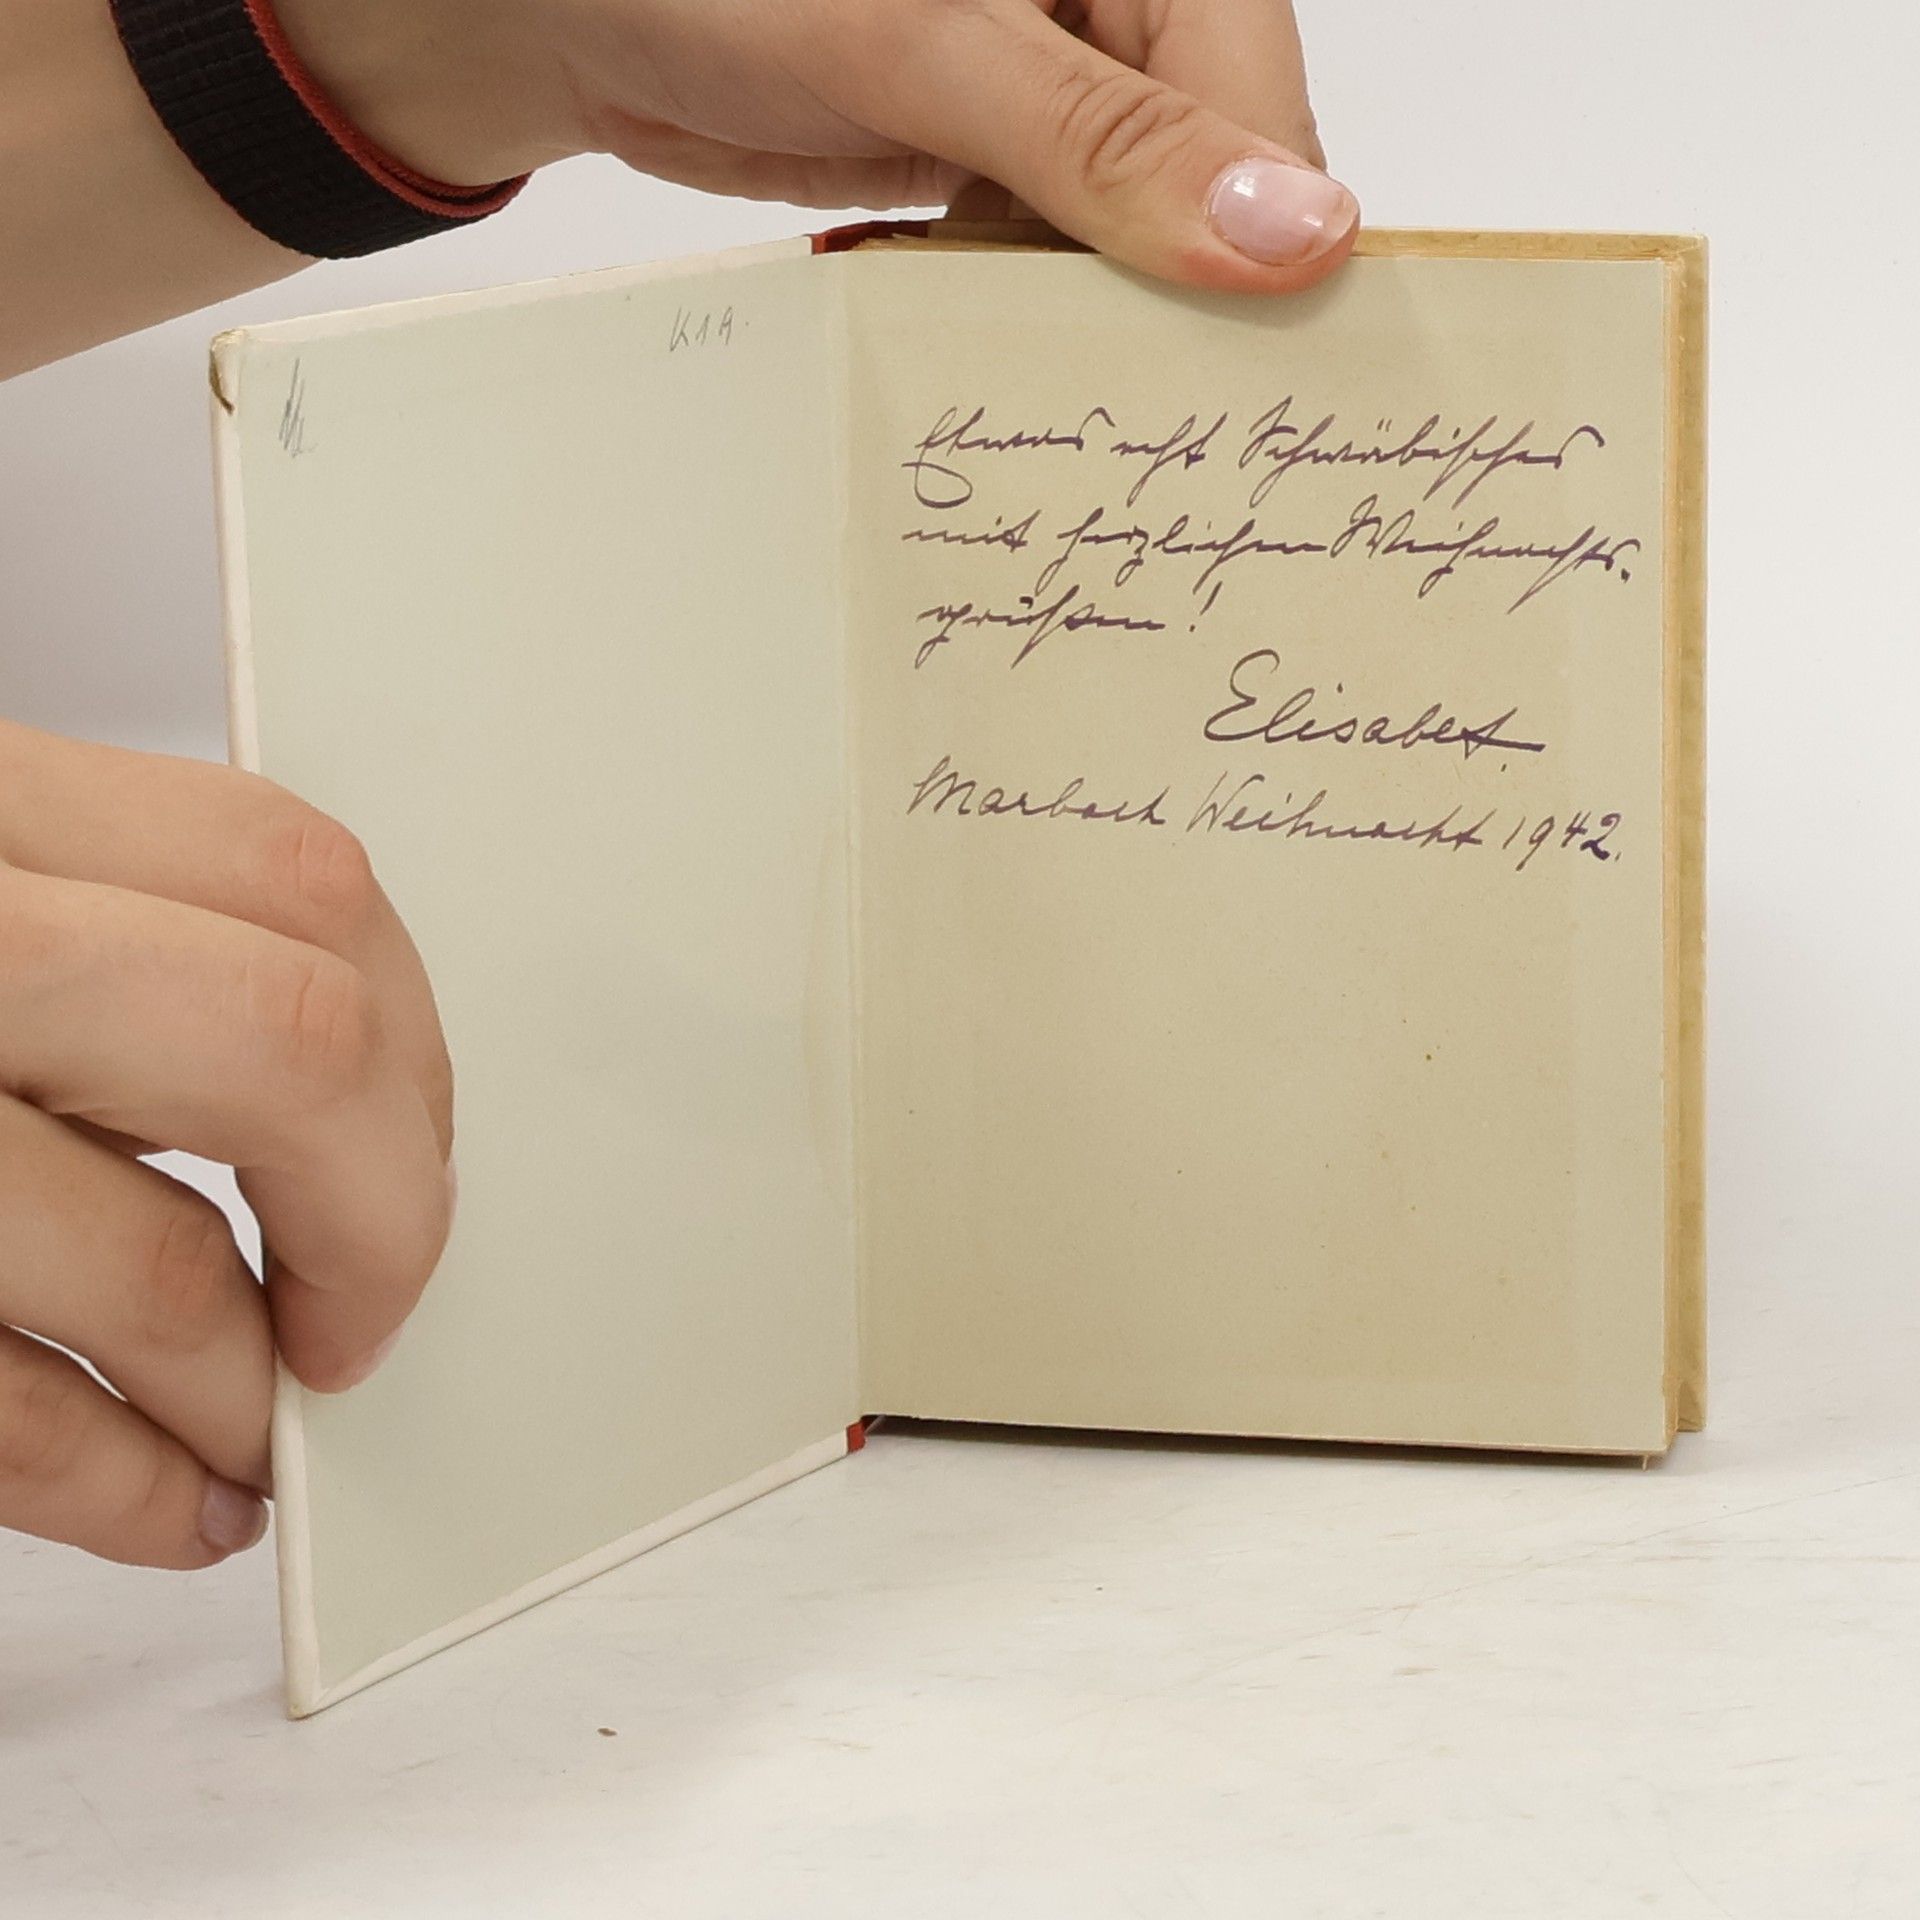 K19.
Etwas echt Schwäbisches
mit herzlichen Weihnachts-
grüßen!
Elisabet.
Marbach Weihnacht 1942.